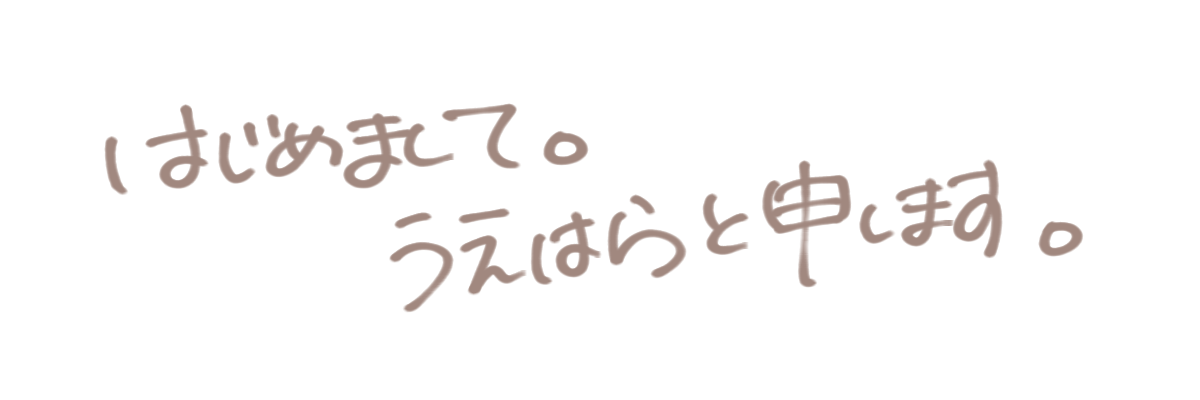 はじめまして。
うえはらと申します。